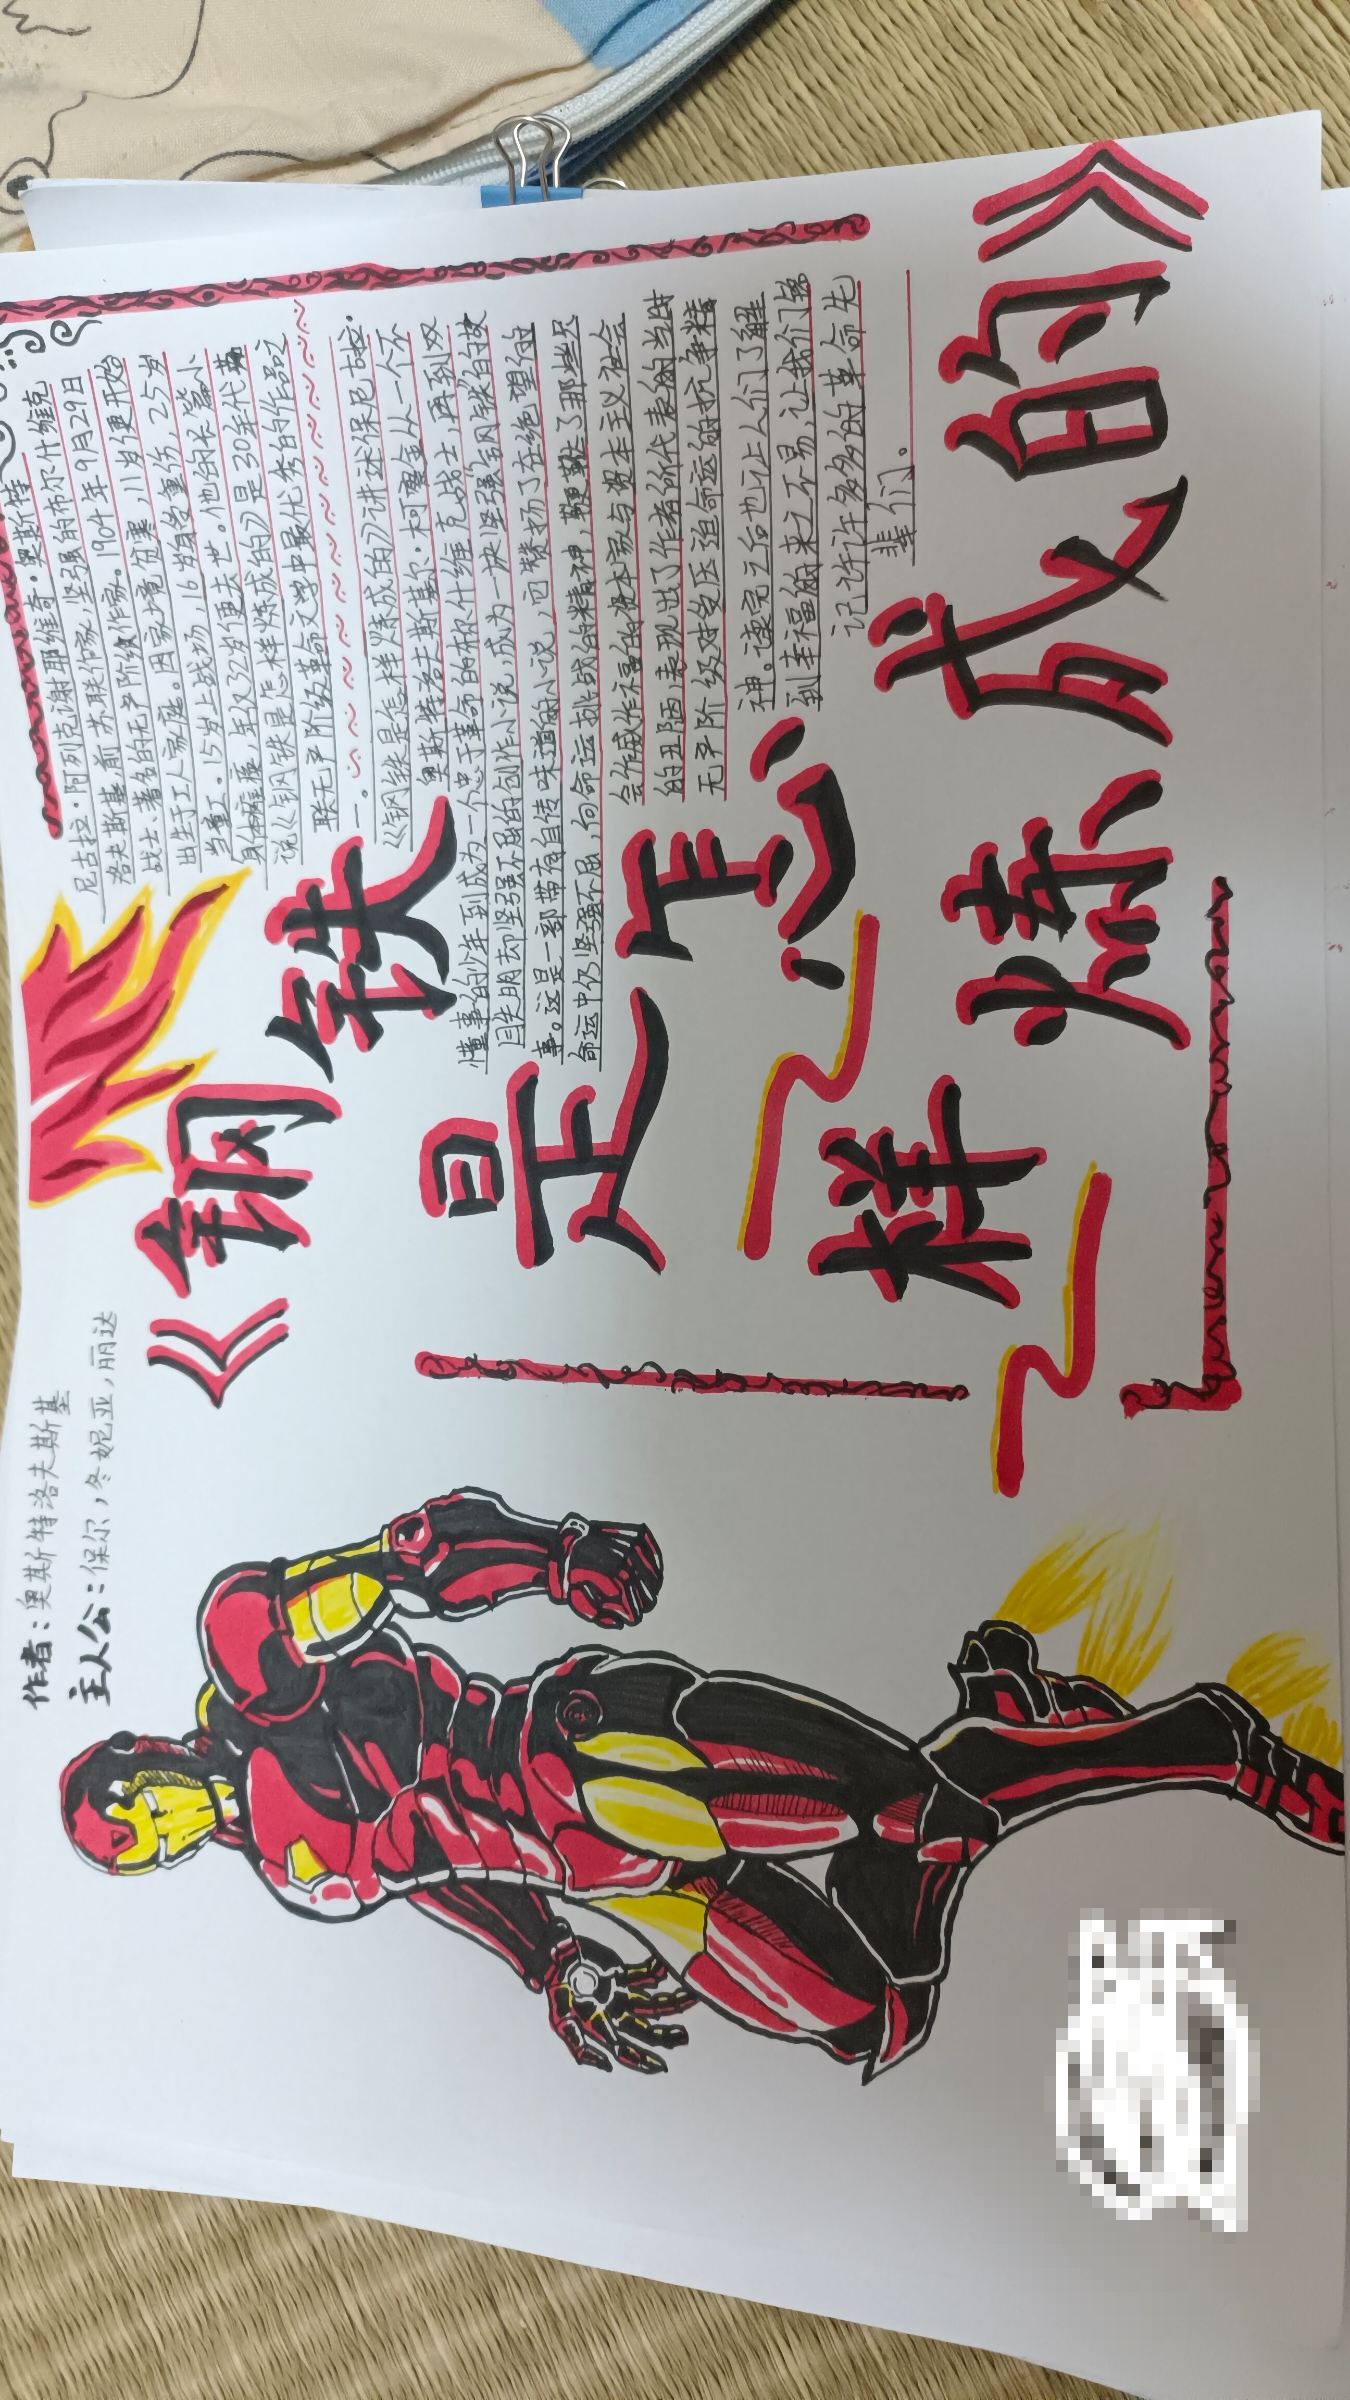 作者：奥斯特洛夫斯基
主人公：保尔，冬妮亚，丽达
《钢铁
是怎
样炼成的》
尼古拉·阿列克谢耶维奇·奥斯特
洛夫斯基，前苏联作家，坚强的布尔什维克
战士、著名的无产阶级作家。1904年9月29日
出生于工人家庭。因家境贫寒，11岁便开始
当童工。15岁上战场，16岁身受重伤，25岁
身体瘫痪，年仅32岁便去世。他的长篇小
说《钢铁是怎样炼成的》是30年代苏
联无产阶级革命文学中最优秀的作品之
一。
《钢铁是怎样炼成的》讲述保尼古拉·
奥斯特洛夫斯基尔·柯察金从一个不
懂事的少年到成为一个忠于革命的布尔什维克战士，再到双
目失明却坚强不屈的创作小说，成为一块坚强钢铁的故
事。这是一部带有自传味道的小说，它赞扬了在绝望的
命运中仍坚强不屈，向命运挑战的精神，鞭挞了那些只
会作威作福的资本家与资本主义社会
的丑陋，表现出了作者所代表的当时
无产阶级对受压迫命运的抗争精
神。读完之后也让人们了解
到幸福的来之不易，让我们铭
记许许多多的革命先
辈们。